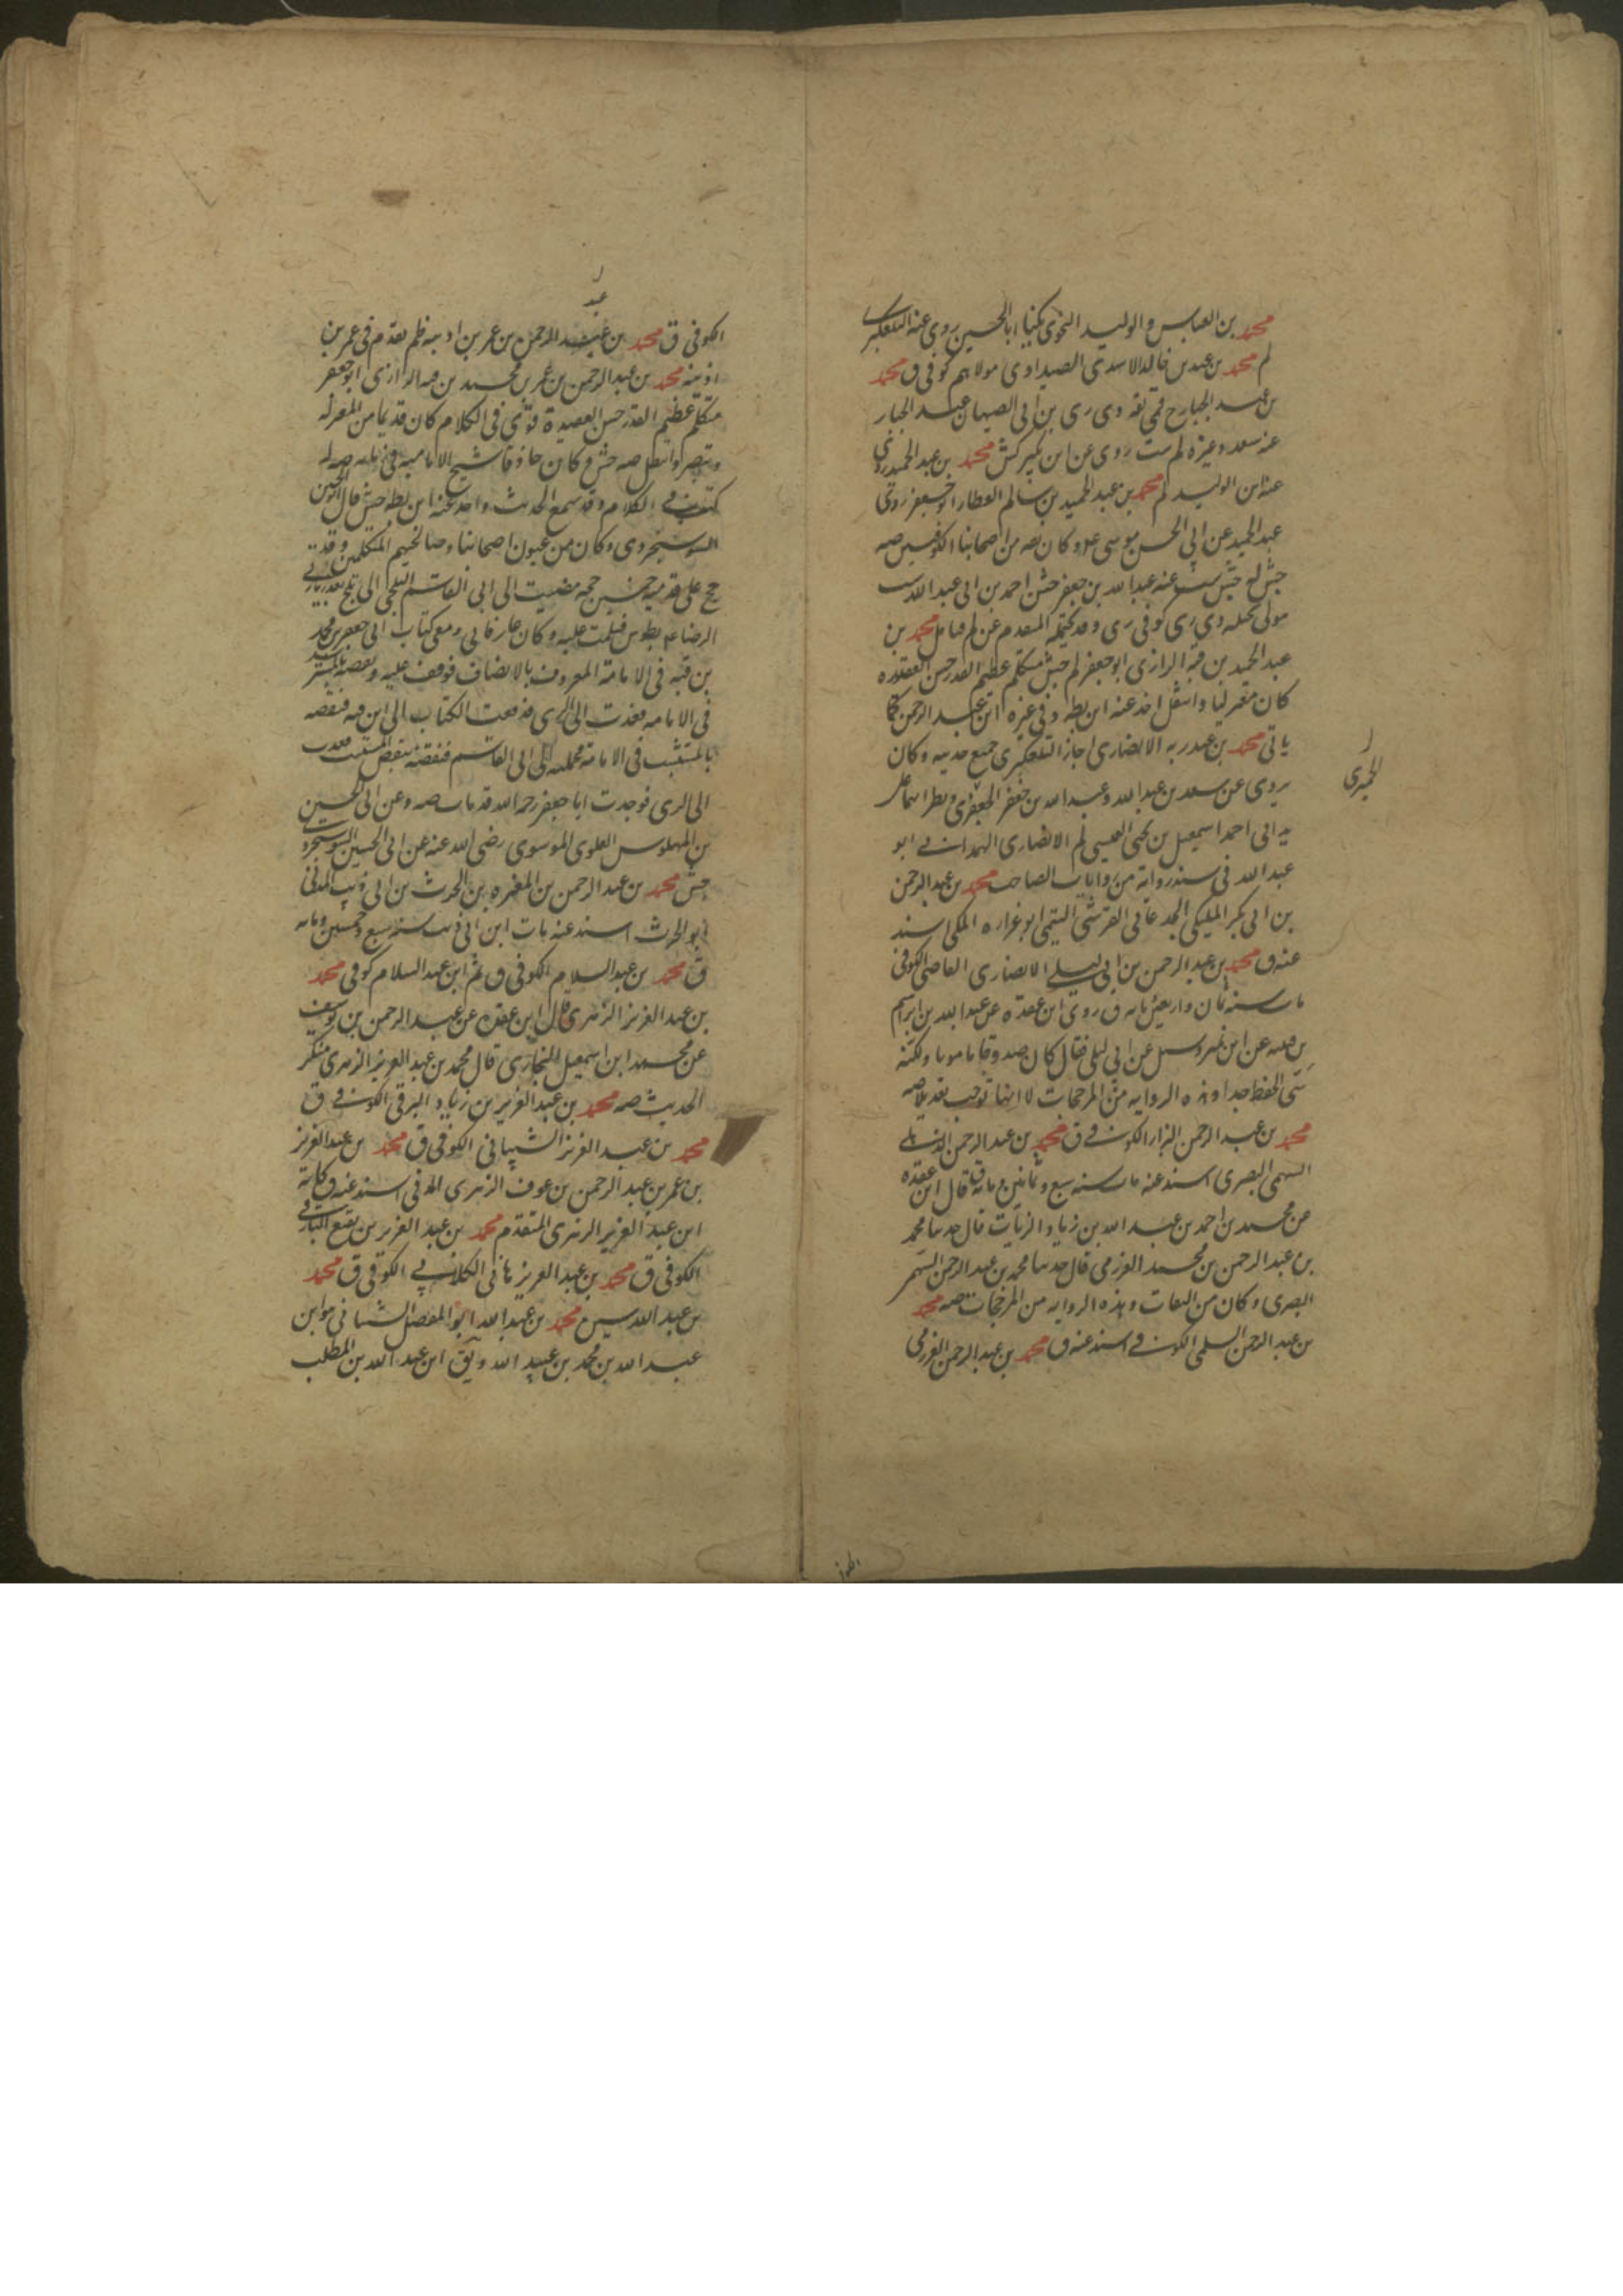 محمد بن العباس و الوليد النحوى يكنى ابا الحسين روى عنه التلعكبرى
لم محمد بن عبد بن خالد الاسدى الصيداوى مولاهم كوفى ق محمد
بن عبد الجبار قمى ثقه دى رى بن ابى الصهبان عبد الجبار
عنه سعد وغيره لم ست روى عن ابن بكير كش محمد بن عبد الحميد روى
عنه ابن الوليد لم محمد بن عبد الحميد بن سالم العطار ابو جعفر روى
عبد الحميد عن ابى الحسن موسى ع و كان ثقه من اصحابنا الكوفيين صه
جش له جش ست عنه عبد الله بن جعفر جش احمد بن ابى عبد الله ست
مولى بجيله دى رى كوفى رى المتقدم عن لم محمد بن
عبد الحميد بن قبه الرازى ابو جعفر لم جش متكلم عظيم القدر حسن العقيده
كان معتزليا وانتقل اخذ عنه ابن بطه و فى غيره ابن عبد الرحمن كما
ياتى محمد بن عبد ربه الانصارى اجاز التلعكبرى جميع حديثه و كان
يروى عن سعد بن عبد الله وعبد الله بن جعفر الجعفرى
الحميرى
يد ابى احمد اسمعيل بن يحيى العبسى لم الانصارى الهمدانى ابو
عبد الله فى سند رواية من روايات محمد بن عبد الرحمن
بن ابى بكر المليكى الجدعانى القرشى التيمى ابو غراره المكى اسند
عنه ق محمد بن عبد الرحمن بن ابى ليلى الانصارى القاضى الكوفى
مات سنه ثمان واربعين مايه ق روى ابن عقده عن عبد الله بن ابراهيم
بن قتيبه عن ابن نمير وسئل عن ابن ابى ليلى فقال كان صدوقا مامونا ولكنه
سئ الحفظ جدا وهذه الروايه من المرجحات لا انها توجب تعديلا صه
محمد بن عبد الرحمن البزاز الكوفى ق محمد بن عبد الرحمن
السهمى البصرى اسند عنه مات سنه سبع وثمانين ومائه ق قال ابن عقده
عن محمد بن احمد بن عبد الله بن زياد الزيات قال حدثنا محمد
بن عبد الرحمن بن محمد العرزمى قال حدثنا محمد بن عبد الرحمن السهمى
البصرى و كان من الثقات وهذه الروايه من المرجحات صه محمد
بن عبد الرحمن السلمى الكوفى اسند عنه ق محمد بن عبد الرحمن العرزمى
عبد
الكوفى ق محمد بن عبد الرحمن بن عمر بن اذينه ظم تقدم فى عمر بن
اذينه محمد بن عبد الرحمن بن عمر بن محمد بن قبه الرازى ابو جعفر
متكلم عظيم القدر حسن العقيدة قوى فى الكلام كان قديما من المعتزله
وتبصر وانتقل صه جش و كان حاذقا شيخ الاماميه فى زمانه صه له
كتب فى الكلام وقد سمع الحديث واخذ عنه ابن بطه جش قال ابو الحسين
السوسنجردى وكان من عيون اصحابنا وصالحيهم المتكلمين وقد
حج على قدميه خمسين حجه مضيت الى ابى القاسم البلخى الى بلخ بعد زيارتى
الرضا ع بطوس فسلمت عليه وكان عارفا بى ومعى كتاب ابى جعفر بن محمد
بن قبه فى الامامة المعروف بالانصاف فوقف عليه ونقضه بالمسترشد
فى الامامه فعدت الى الرى فدفعت الكتاب الى ابن قبه فنقضه
بالمستثبت فى الامامة فحملته الى ابى القاسم فنقضه بنقض المستثبت فعدت
الى الرى فوجدت ابا جعفر رحمه الله قد مات صه وعن ابى الحسين
بن المهلوس العلوى الموسوى رضى الله عنه عن ابى الحسين السوسنجردى
جش محمد بن عبد الرحمن بن المغيره بن الحرث بن ابى ذيب المدنى
ابو الحرث اسند عنه مات ابن ابى ذيب سنه سبع وخمسين ومايه
ق محمد بن عبد السلام الكوفى ق ثم ابن عبد السلام كوفى محمد
بن عبد العزيز الزهرى قال ابن عقده عن عبد الرحمن بن يوسف
عن محمد ابن اسمعيل البخارى قال محمد بن عبد العزيز الزهرى منكر
الحديث صه محمد بن عبد العزيز بن زياد البرقى الكوفى ق
محمد بن عبد العزيز الشيبانى الكوفى ق محمد بن عبد العزيز
بن عمر بن عبد الرحمن بن عوف الزهرى المدنى اسند عنه ق كانه
ابن عبد العزيز الزهرى المتقدم محمد بن عبد العزيز بن
الكوفى ق محمد بن عبد العزيز هانى الكلابى الكوفى ق محمد
بن عبد الله سين محمد بن عبد الله ابو المفضل الشيبانى هو ابن
عبد الله بن محمد بن عبيد الله ويق ابن عبد الله بن المطلب